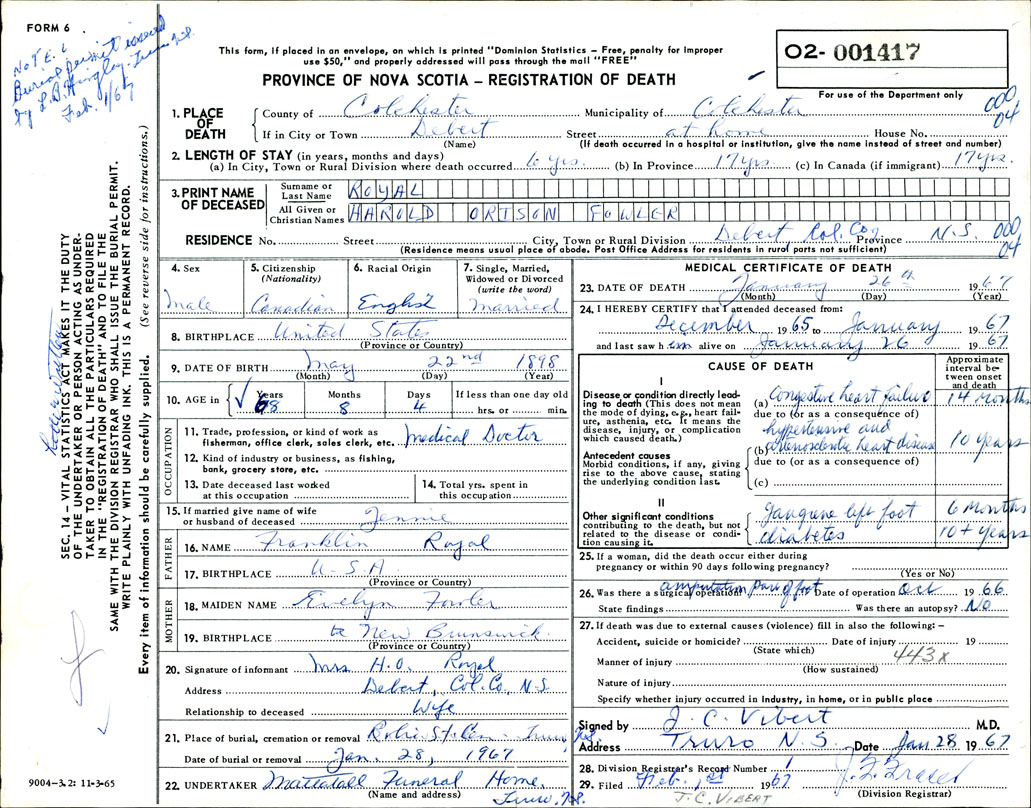 FORM 6
NOTE: Burial permit issued
by L. D. Hingley, Truro N.S.
Feb. 1/67
This form, if placed in an envelope, on which is printed "Dominion Statistics – Free, penalty for improper
use $50," and properly addressed will pass through the mail "FREE"
PROVINCE OF NOVA SCOTIA – REGISTRATION OF DEATH
O2- 001417
For use of the Department only
000
04
1. PLACE OF DEATH
County of Colchester Municipality of Colchester
If in City or Town Debert Street at home House No.
(Name) (If death occurred in a hospital or institution, give the name instead of street and number)
2. LENGTH OF STAY (in years, months and days)
(a) In City, Town or Rural Division where death occurred 6 yrs. (b) In Province 17 yrs (c) In Canada (if immigrant) 17 yrs.
3. PRINT NAME OF DECEASED
Surname or Last Name ROYAL
All Given or Christian Names HAROLD ORTSON FOWLER
RESIDENCE No. Street City, Town or Rural Division Debert Col. Co. Province N.S.
000
04
(Residence means usual place of abode. Post Office Address for residents in rural parts not sufficient)
4. Sex
Male
5. Citizenship
(Nationality)
Canadian
6. Racial Origin
English
7. Single, Married,
Widowed or Divorced
(write the word)
married
8. BIRTHPLACE United States
(Province or Country)
9. DATE OF BIRTH May 22nd 1898
(Month) (Day) (Year)
10. AGE in
Years Months Days If less than one day old
68 8 4 hrs. or min.
OCCUPATION
11. Trade, profession, or kind of work as
fisherman, office clerk, sales clerk, etc. Medical Doctor
12. Kind of industry or business, as fishing,
bank, grocery store, etc.
13. Date deceased last worked
at this occupation
14. Total yrs. spent in
this occupation
15. If married give name of wife
or husband of deceased Jennie
FATHER
16. NAME Franklin Royal
17. BIRTHPLACE U.S.A.
(Province or Country)
MOTHER
18. MAIDEN NAME Evelyn Fowler
19. BIRTHPLACE New Brunswick
(Province or Country)
20. Signature of informant Mrs. H.O. Royal
Address Debert, Col. Co., N.S.
Relationship to deceased Wife
21. Place of burial, cremation or removal Robie St. Cem. Truro
N.S.
Date of burial or removal Jan. 28, 1967
22. UNDERTAKER Mattatall Funeral Home,
(Name and address) Truro, N.S.
MEDICAL CERTIFICATE OF DEATH
23. DATE OF DEATH January 26th 1967
(Month) (Day) (Year)
24. I HEREBY CERTIFY that I attended deceased from:
December 1965 to January 1967
and last saw him alive on January 26 1967
CAUSE OF DEATH
Approximate
interval be-
tween onset
and death
I
Disease or condition directly lead-
ing to death (This does not mean
the mode of dying, e.g., heart fail-
ure, asthenia, etc. It means the
disease, injury, or complication
which caused death.)
(a) Congestive heart failure 14 months
due to (or as a consequence of)
hypertensive and
(b) arteriosclerotic heart disease 10 years
due to (or as a consequence of)
(c)
Antecedent causes
Morbid conditions, if any, giving
rise to the above cause, stating
the underlying condition last.
II
Other significant conditions
contributing to the death, but not
related to the disease or condi-
tion causing it.
Gangrene left foot 6 months
diabetes 10+ years
25. If a woman, did the death occur either during
pregnancy or within 90 days following pregnancy?
(Yes or No)
26. Was there a surgical operation amputation part of foot Date of operation Oct 1966
State findings Was there an autopsy? NO
27. If death was due to external causes (violence) fill in also the following: –
Accident, suicide or homicide? Date of injury 19
(State which) 443x
Manner of injury
(How sustained)
Nature of injury
Specify whether injury occurred in industry, in home, or in public place
Signed by J. C. Vibert M.D.
Address Truro N.S. Date Jan 28 1967
28. Division Registrar's Record Number 1
29. Filed Feb. 1st 1967
(Division Registrar)
J.C. VIBERT
SEC. 14 – VITAL STATISTICS ACT MAKES IT THE DUTY
OF THE UNDERTAKER OR PERSON ACTING AS UNDER-
TAKER TO OBTAIN ALL THE PARTICULARS REQUIRED
IN THE "REGISTRATION OF DEATH" AND TO FILE THE
SAME WITH THE DIVISION REGISTRAR WHO SHALL ISSUE THE BURIAL PERMIT.
WRITE PLAINLY WITH UNFADING INK. THIS IS A PERMANENT RECORD.
Every item of information should be carefully supplied. (See reverse side for instructions.)
9004–3.2: 11-3-65